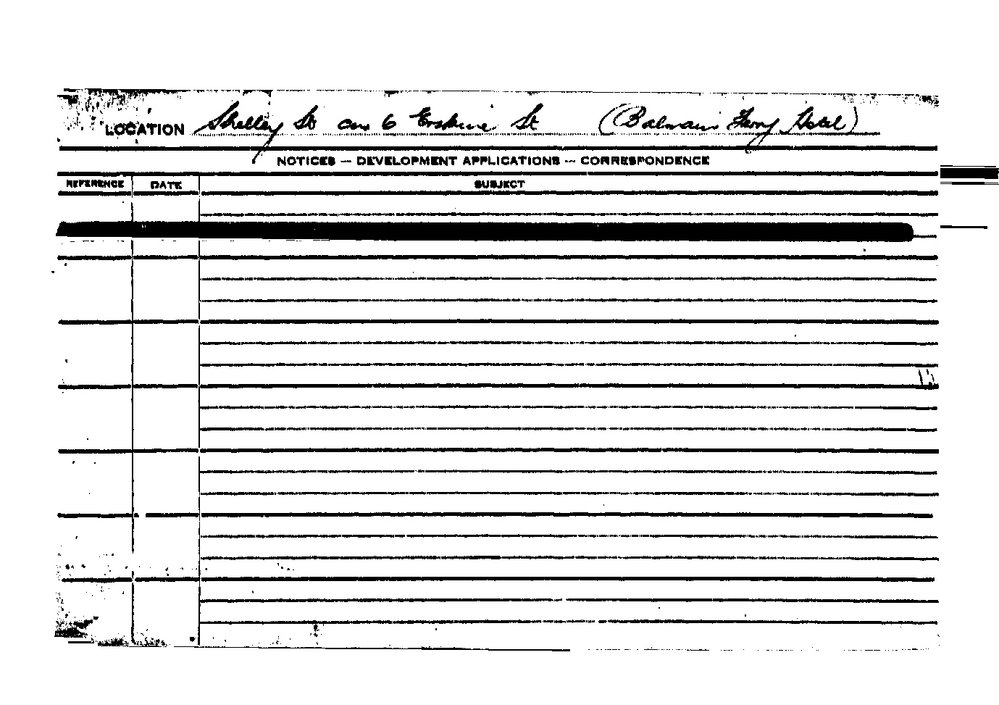 LOCATION Shelley St cnr 6 Erskine St (Balmain Ferry Hotel)
NOTICES — DEVELOPMENT APPLICATIONS — CORRESPONDENCE
REFERENCE DATE SUBJECT